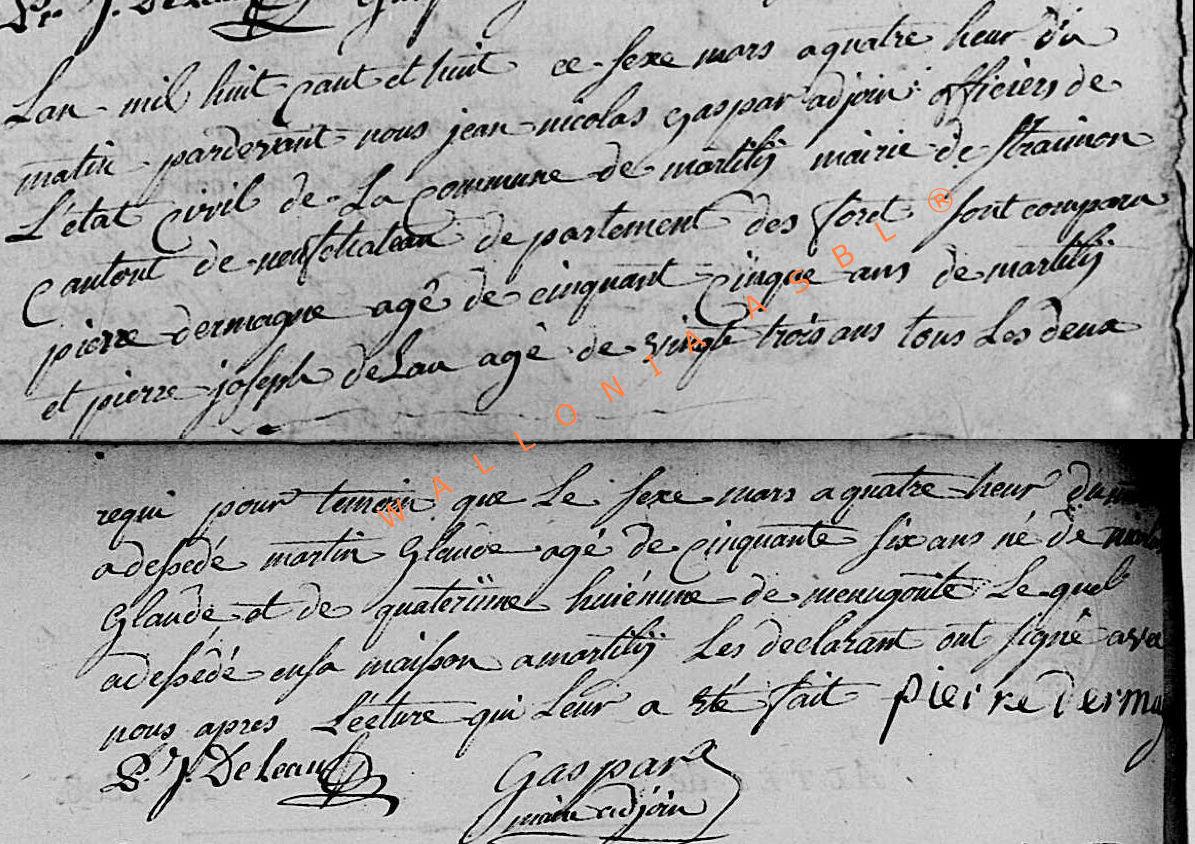 P. J. DeLeau
Lan mil huit çant et huit ce sexe mars a quatre heur du
matin pardevant nous jean nicolas gaspar adjoin officiers de
L'état çivil de La commune de martilÿ mairie de straimon
cantont de neufchateau departement des foret sont compara
pierre dermagne agê de cinquant çinque ans de martilÿ
et pierre joseph deLau agê de vingt trois ans tous Les deux
requi pour temoin que Le sexe mars a quatre heur du
adessédé martin Glaude agé de çinquante six ans né de
Glaude et de quateriïne huiénine de menugoute Le quel
adessédé ensa maisson amartilÿ Les declarant ont signé avec
nous apres Lécture qui Leur a été fait pierre Derma
P. J. DeLeau
Gaspar
maire adjoin
WALLONIA ASBL ®